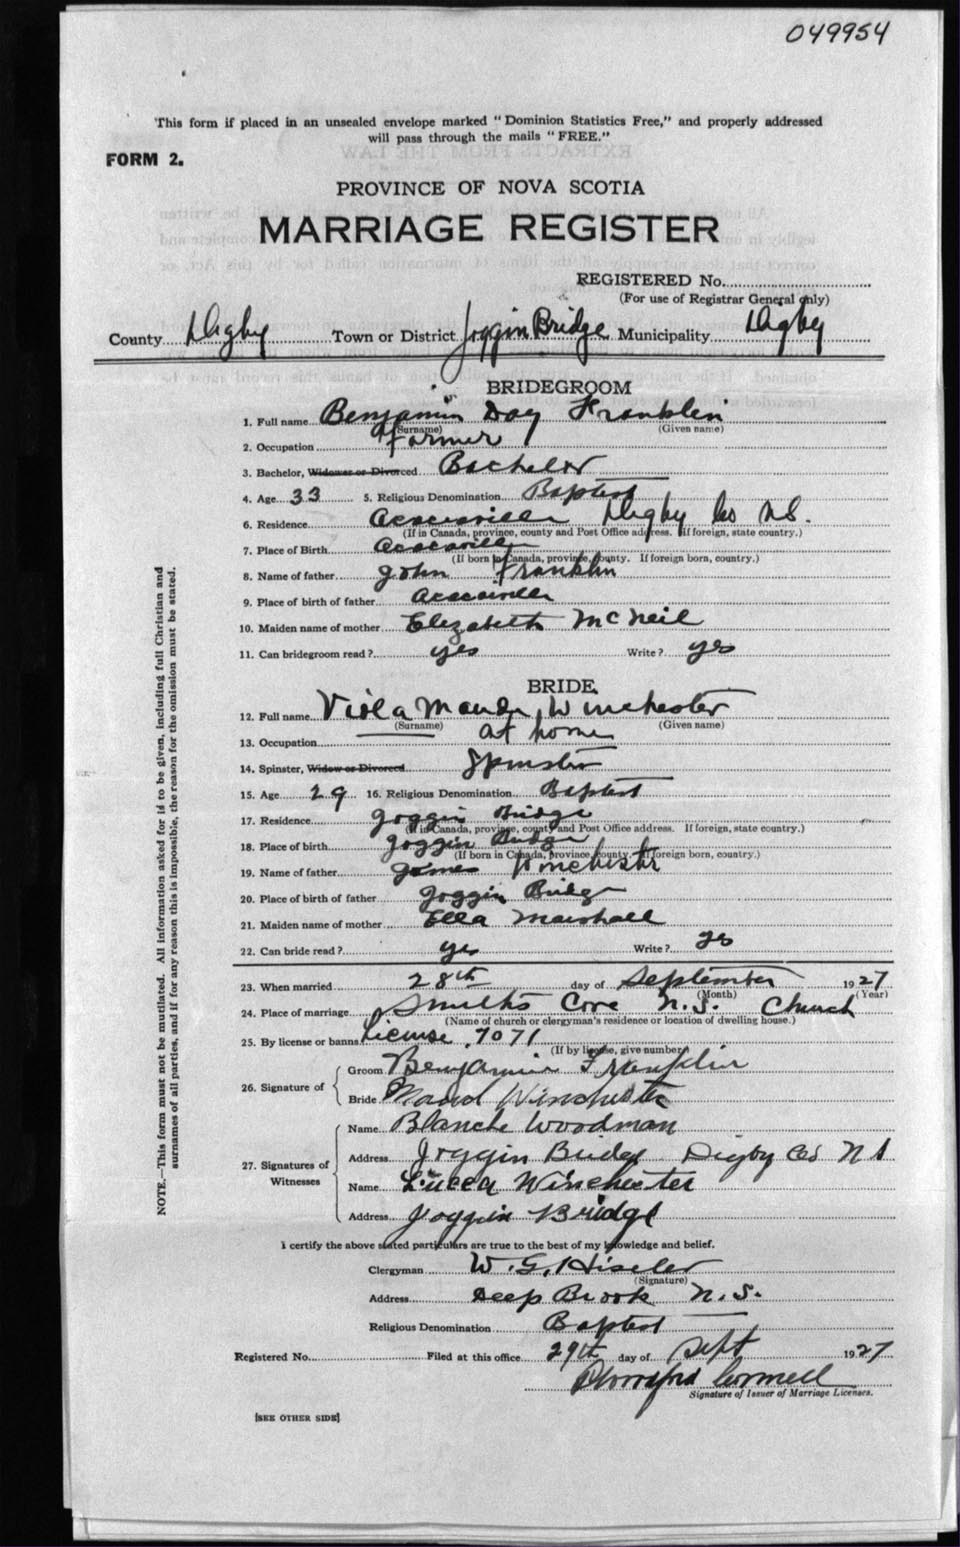 049954
This form if placed in an unsealed envelope marked "Dominion Statistics Free," and properly addressed
will pass through the mails "FREE."
FORM 2.
PROVINCE OF NOVA SCOTIA
MARRIAGE REGISTER
REGISTERED No.
(For use of Registrar General only)
County Digby Town or District Joggin Bridge Municipality Digby
BRIDEGROOM
1. Full name Benjamin Day Franklin
(Surname) (Given name)
2. Occupation Farmer
3. Bachelor, Widower or Divorced Bachelor
4. Age 33 5. Religious Denomination Baptist
6. Residence Acaciaville Digby Co N.S.
(If in Canada, province, county and Post Office address. If foreign, state country.)
7. Place of Birth Acaciaville
(If born in Canada, province, county. If foreign born, country.)
8. Name of father John Franklin
9. Place of birth of father Acaciaville
10. Maiden name of mother Elizabeth McNeil
11. Can bridegroom read? yes Write? yes
BRIDE
12. Full name Viola Maude Winchester
(Surname) (Given name)
13. Occupation at home
14. Spinster, Widow or Divorced Spinster
15. Age 29 16. Religious Denomination Baptist
17. Residence Joggin Bridge
(If in Canada, province, county and Post Office address. If foreign, state country.)
18. Place of birth Joggin Bridge
(If born in Canada, province, county. If foreign born, country.)
19. Name of father James Winchester
20. Place of birth of father Joggin Bridge
21. Maiden name of mother Ella Marshall
22. Can bride read? yes Write? yes
23. When married 28th day of September 1927
(Month) (Year)
24. Place of marriage Smith's Cove N.S. Church
(Name of church or clergyman's residence or location of dwelling house.)
25. By license or banns License 7071
(If by license, give number)
26. Signature of
Groom Benjamin Franklin
Bride Maud Winchester
27. Signatures of Witnesses
Name Blanche Woodman
Address Joggin Bridge Digby Co N S
Name Winchester
Address Joggin Bridge
I certify the above stated particulars are true to the best of my knowledge and belief.
Clergyman W. G.
(Signature)
Address Deep Brook N.S.
Religious Denomination Baptist
Registered No. Filed at this office 29th day of Sept 1927
Signature of Issuer of Marriage Licenses.
[SEE OTHER SIDE]
NOTE.—This form must not be mutilated. All information asked for is to be given, including full Christian and
surnames of all parties, and if for any reason this is impossible, the reason for the omission must be stated.